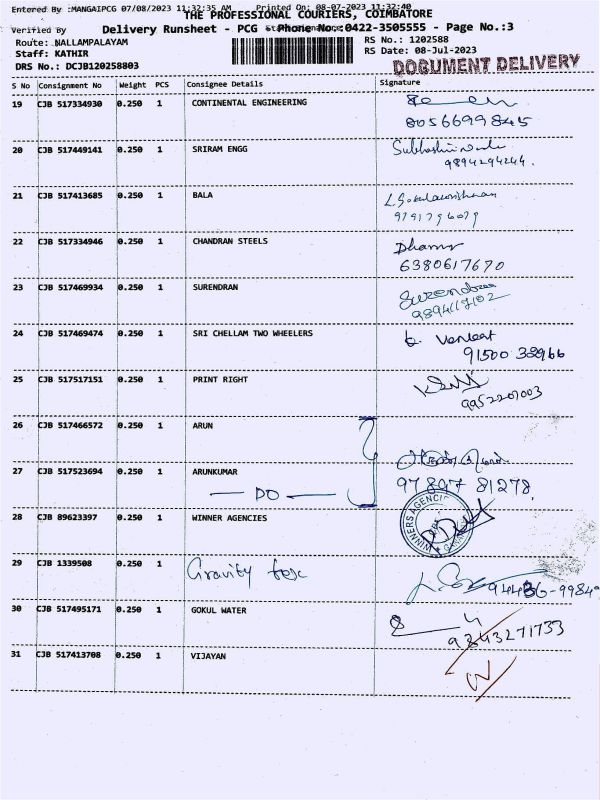 Entered By :MANGAIPCG 07/08/2023 11:32:35 AM Printed On: 08-07-2023 11:32:40
THE PROFESSIONAL COURIERS, COIMBATORE
Verified By Delivery Runsheet - PCG - Phone No:0422-3505555 - Page No.:3
Route: NALLAMPALAYAM RS No.: 1202588
Staff: KATHIR RS Date: 08-Jul-2023
DRS No.: DCJB120258803 DOCUMENT DELIVERY
S No Consignment No Weight PCS Consignee Details Signature
19 CJB 517334930 0.250 1 CONTINENTAL ENGINEERING
8056699845
20 CJB 517449141 0.250 1 SRIRAM ENGG
9894294244.
21 CJB 517413685 0.250 1 BALA L.Gokulakrishnan
9791796079
22 CJB 517334946 0.250 1 CHANDRAN STEELS
6380617670
23 CJB 517469934 0.250 1 SURENDRAN Surendran
9894119102
24 CJB 517469474 0.250 1 SRI CHELLAM TWO WHEELERS
91500 38966
25 CJB 517517151 0.250 1 PRINT RIGHT
9952201003
26 CJB 517466572 0.250 1 ARUN
27 CJB 517523694 0.250 1 ARUNKUMAR
— DO — 97897 81278.
28 CJB 89623397 0.250 1 WINNER AGENCIES WINNERS AGENCIES
29 CJB 1339508 0.250 1 Gravity fox
30 CJB 517495171 0.250 1 GOKUL WATER
9843271733
31 CJB 517413708 0.250 1 VIJAYAN